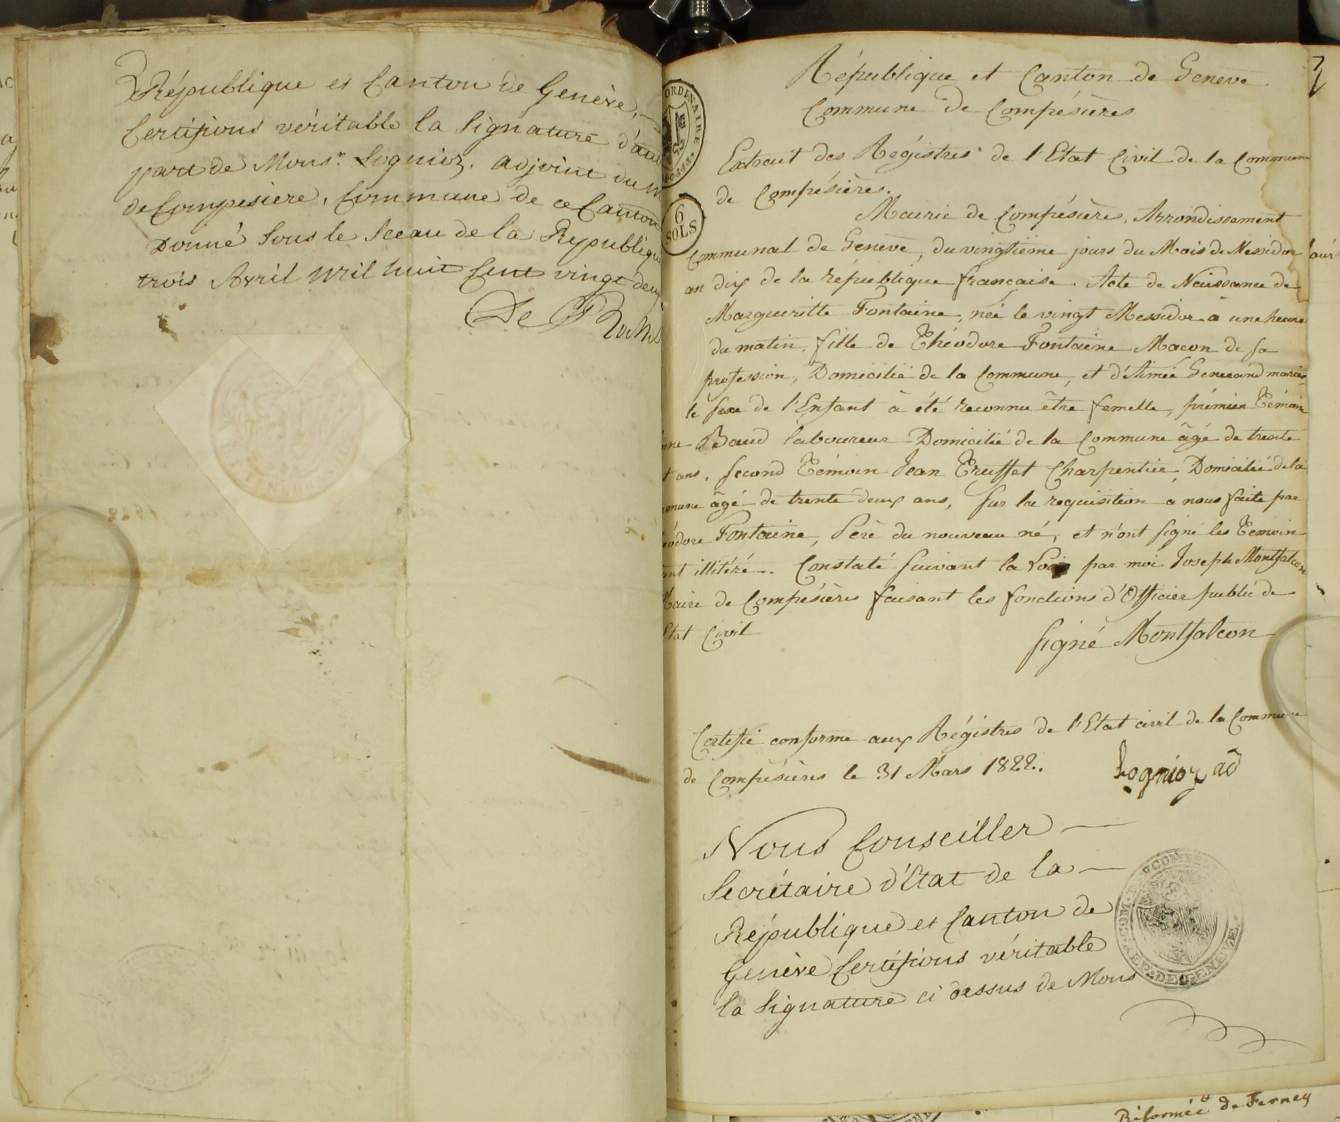 République et Canton de Genève,
Certifions véritable la Signature d'aut
part de Mons.r Lognioz. adjoint du M
de Compesiere, Commune de ce Canton
Donné Sous le Sceau de la République
trois Avril Mil huit Cent vingt deux
De
République et Canton de Geneve
Commune de Compésières
Extrait des Régistres de l'Etat Civil de la Commune
de Compésières.
Mairie de Compésière, Arrondissement
Communal de Genève, du vingtieme jours du Mois de Messidor l'an
an dix de la république française Acte de Naissance de
Margueritte Fontaine, née le vingt Messidor à une heure
du matin. fille de Théodore Fontaine Macon de sa
profession, Domicilié de la Commune, et d'Aimée Generand mariés
le sexe de l'Enfant à été reconnu être femelle, prémier Témoin
Baud laboureur Domicilié de la Commune âgé de trente
ans, second Témoin Jean Truffet Charpentier Domicilié de la
mune âgé de trente deux ans, sur la requisition à nous faite par
éodore Fontaine, Père du nouveau né, et n'ont signé les Temoin
nt illitéré. Constaté suivant la Loix par moi Joseph Montfalcon
Maire de Compésières faisant les fonctions d'Officier public de
Etat Civil
signé Montfalcon
Certifié conforme aux Régistres de l'Etat civil de la Commune
de Compésières le 31 Mars 1822.
Lognioz ad
Nous Conseiller
Secrétaire d'Etat de la
République et Canton de
Genève Certifions véritable
la Signature ci dessus de Mons
6
SOLS
ORDINAIRE
REP. DE GENEVE.
Réformée de Ferney